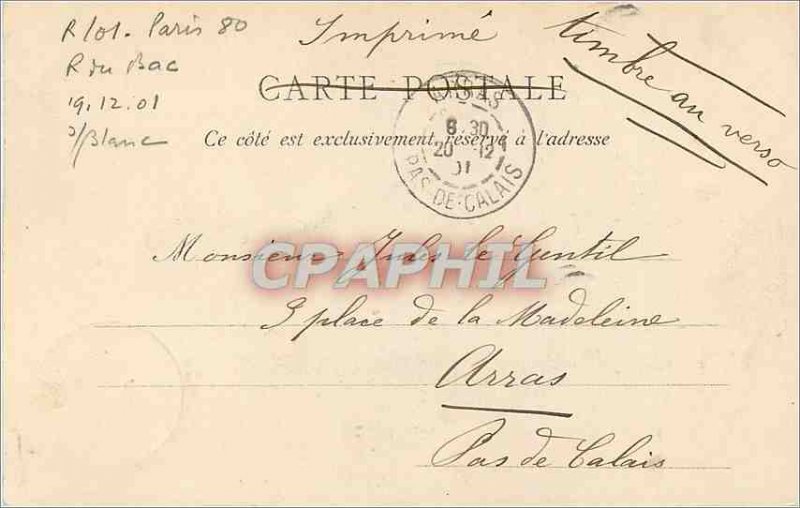 R/ot. Paris 80
R du Bac
19.12.01
s/Blanc
Imprimé
timbre au verso
CARTE POSTALE
Ce côté est exclusivement réservé à l'adresse
ARRAS
8 30
20 12
01
PAS-DE-CALAIS
Monsieur Jules le Gentil
CPAPHIL
9 place de la Madeleine
Arras
Pas de Calais